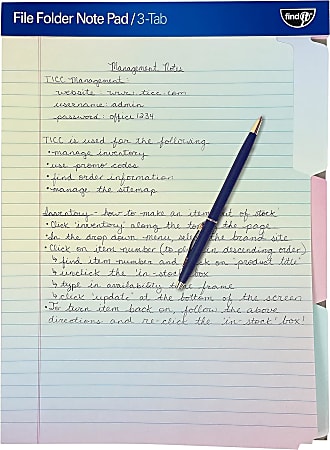 File Folder Note Pad / 3-Tab
find It
Management Notes
TICC Management:
website - www.ticc.com
username: admin
password: office1234
TICC is used for the following
• manage inventory
• use promo codes
• find order information
• manage the sitemap
Inventory - how to make an item out of stock
• Click 'inventory' along the top of the page
• In the drop down menu, select the brand site
• Click on item number (to in descending order)
↳ find item number and click on 'product title'
↳ unclick the 'in-stock' box
↳ type in availability time frame
↳ click 'update' at the bottom of the screen
• To turn item back on, follow the above
directions and re-click the 'in-stock' box!